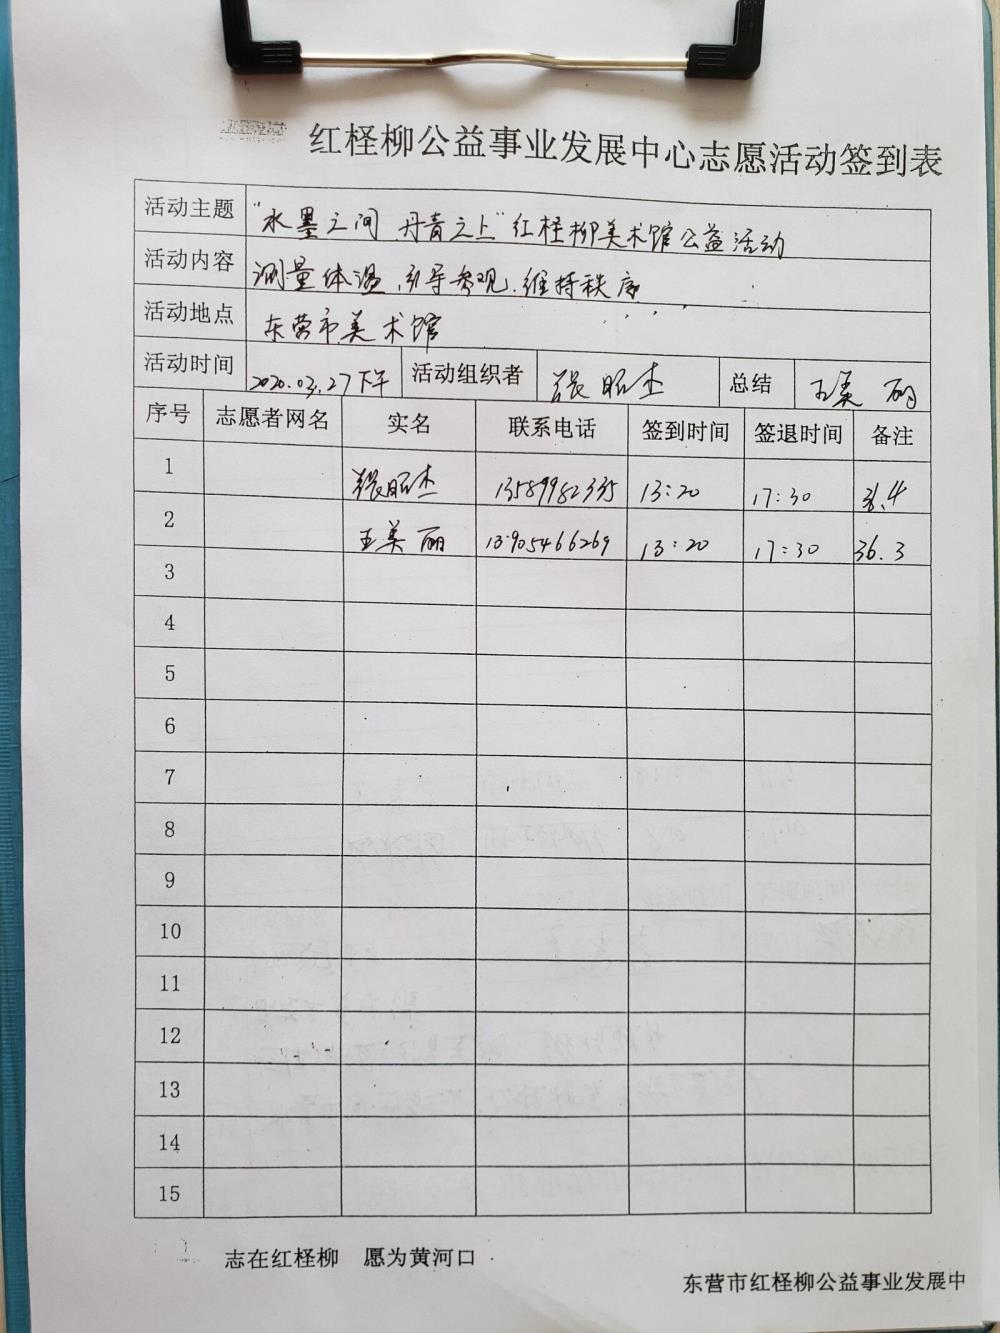 红柽柳公益事业发展中心志愿活动签到表
活动主题 "水墨之间 丹青之上"红柽柳美术馆公益活动
活动内容 测量体温、引导参观、维持秩序
活动地点 东营市美术馆
活动时间 2020.03.27下午 活动组织者 张昭杰 总结 王美丽
序号 志愿者网名 实名 联系电话 签到时间 签退时间 备注
1 张昭杰 13589982335 13:20 17:30 36.4
2 王美丽 13905466269 13:20 17:30 36.3
3
4
5
6
7
8
9
10
11
12
13
14
15
志在红柽柳 愿为黄河口
东营市红柽柳公益事业发展中